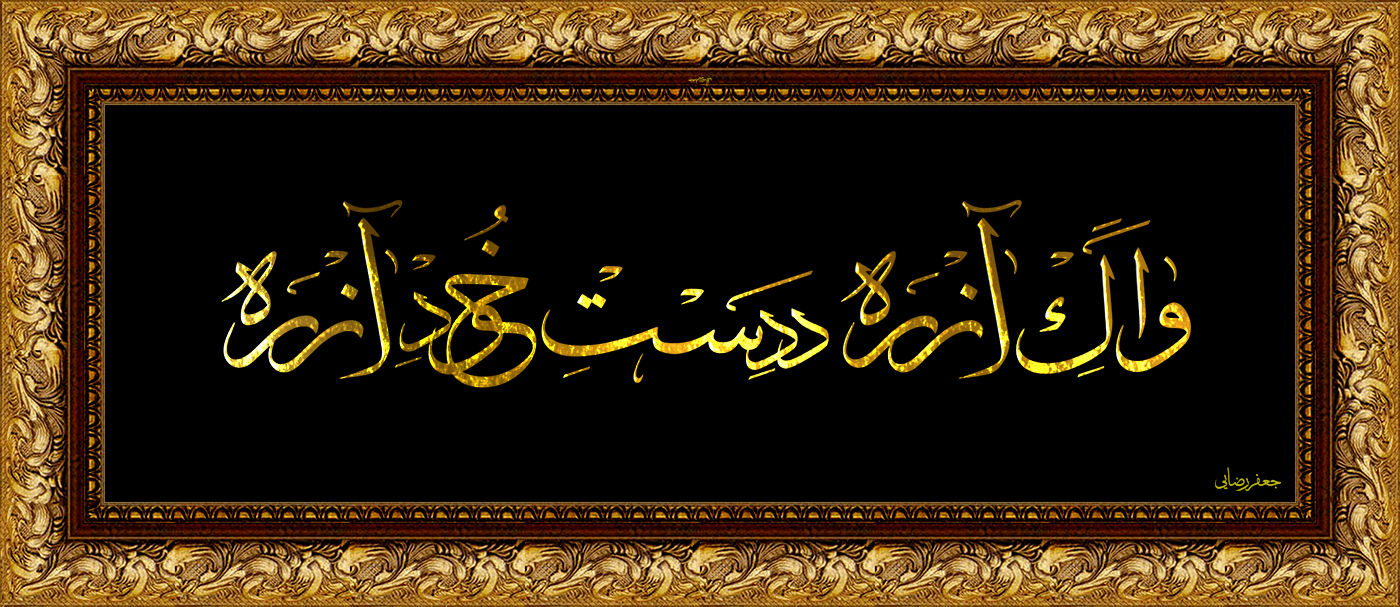 وَاگِ آزْرَه ددِسْتِ خُودِ آزْرَه
جعفر رضایی